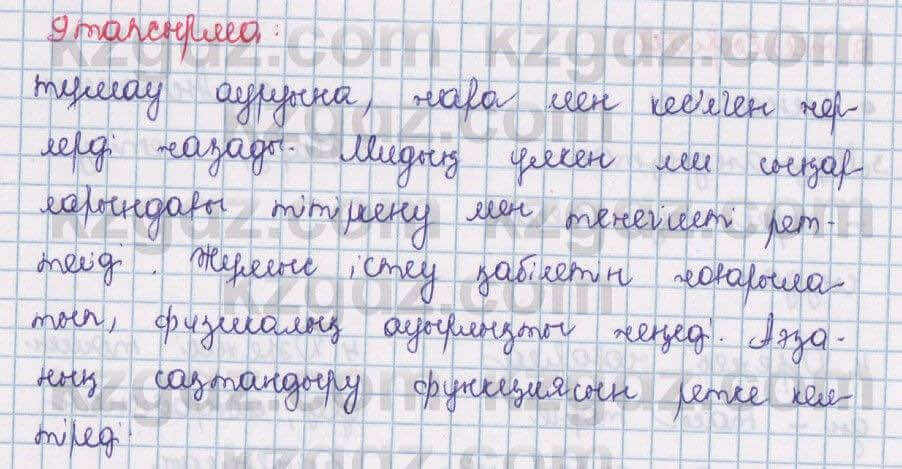 9 тапсырма:
тұмау ауруына, жара мен кесілген жер-
лерді жазады. Мидың үлкен ми сыңар
ларындағы тітіркену мен тежегішті рет-
тейді. Жұмыс істеу қабілетін жоғарыла-
тып, физикалық ауырлықты жеңеді. Ағза-
ның сақтандыру функциясын ретке кел-
тіреді.
kzgdz.com